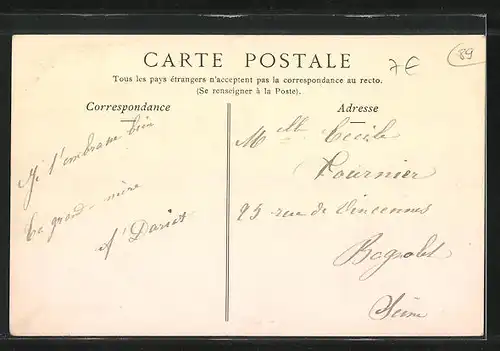 CARTE POSTALE
7€
89
Tous les pays étrangers n'acceptent pas la correspondance au recto.
(Se renseigner à la Poste).
Correspondance
Adresse
Je t'embrasse bien
Ta grand-mère
Mlle Cécile
Fournier
95 rue de Vincennes
Bagnolet
Seine